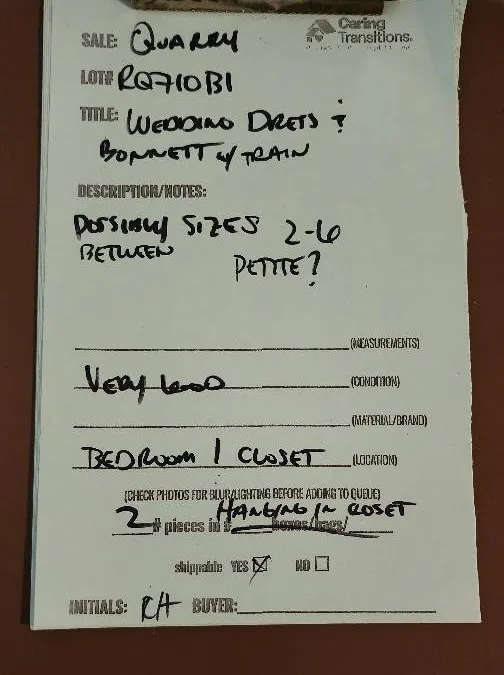 Caring
Transitions.
SALE: QUARRY
LOT# RQ710B1
TITLE: WEDDING DRESS &
BONNETT w/ TRAIN
DESCRIPTION/NOTES:
POSSIBLY SIZES 2-6
BETWEEN
PETITE?
(MEASUREMENTS)
VERY GOOD (CONDITION)
(MATERIAL/BRAND)
BEDROOM 1 CLOSET (LOCATION)
(CHECK PHOTOS FOR BLUR/LIGHTING BEFORE ADDING TO QUEUE)
HANGING IN CLOSET
2 # pieces in # boxes/bags/
shippable YES ☒ NO ☐
INITIALS: RH BUYER: